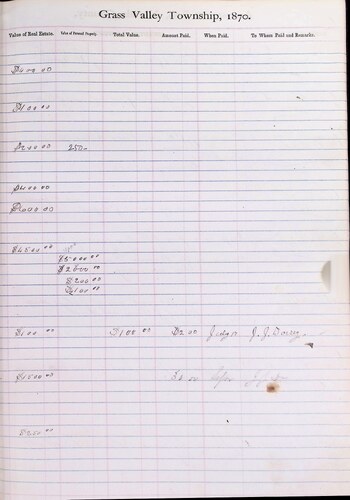 Grass Valley Township, 1870.
Value of Real Estate. Value of Personal Property. Total Value. Amount Paid. When Paid. To Whom Paid and Remarks.
$400 00
$100 00
$200 00 250
$400 00
$2000 00
$4500 00
$5000 00
$2000 00
$200 00
$100 00
$100 00 $100 00 $2 00 J. J.
$1500 00
$250 00